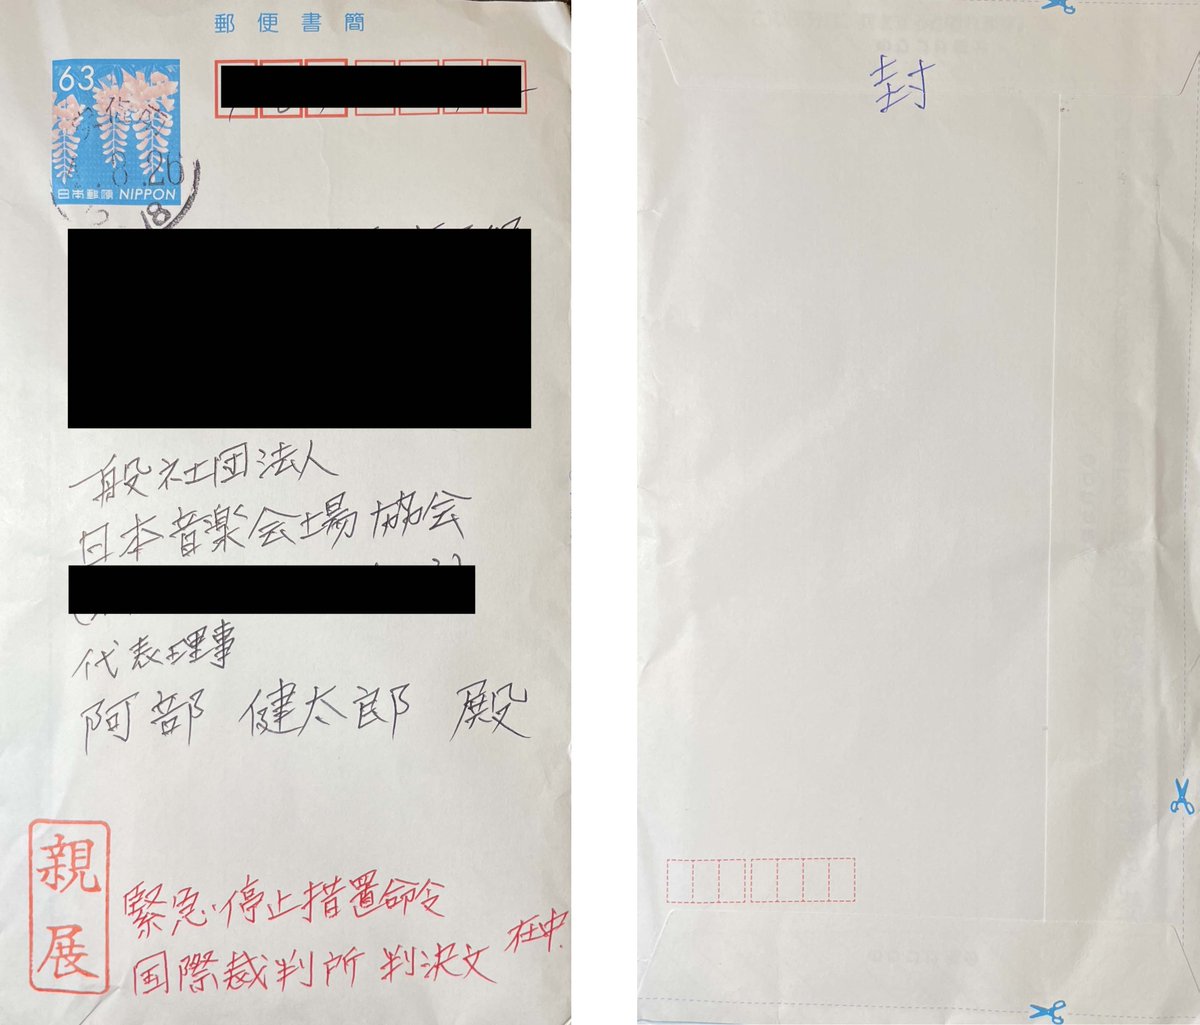 郵便書簡
63
日本郵便 NIPPON
一般社団法人
日本音楽会場協会
代表理事
阿部 健太郎 殿
親展
緊急停止措置命令
国際裁判所 判決文 在中
封